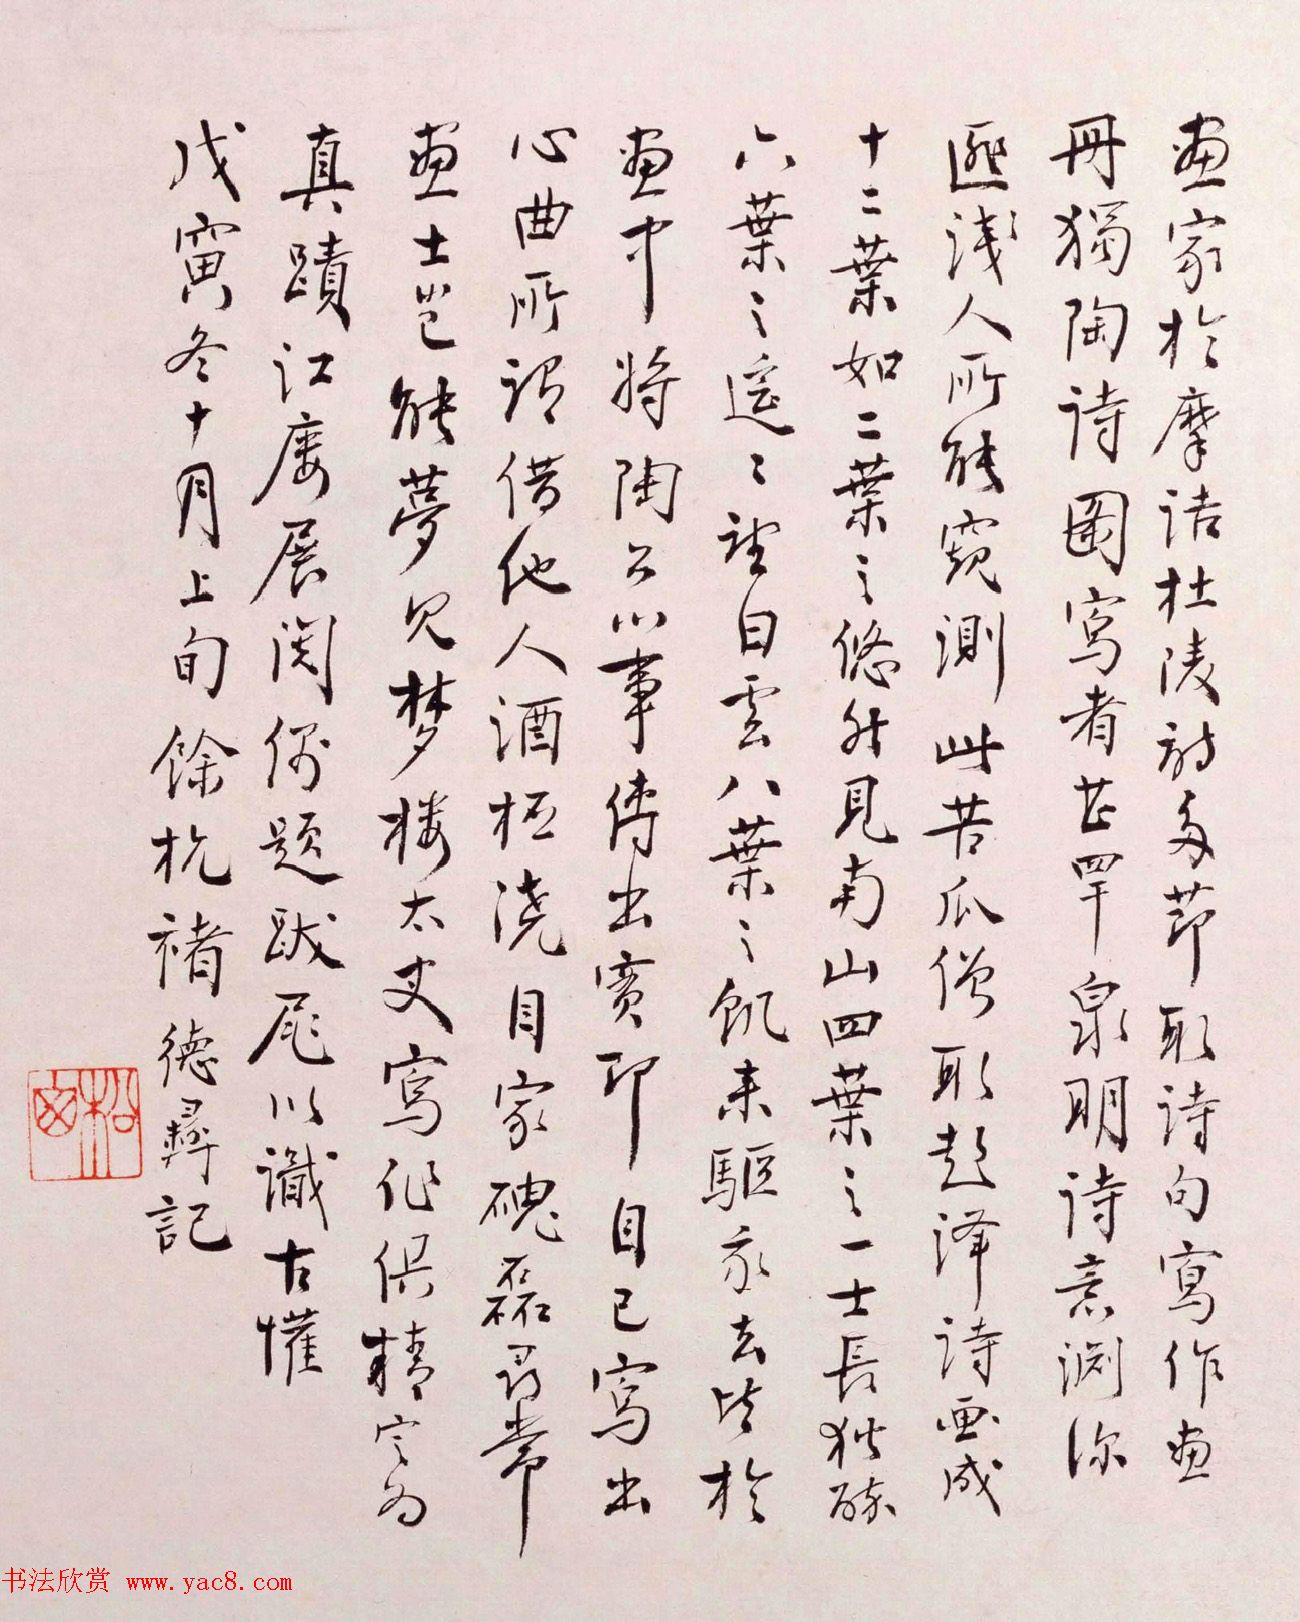 畫家於摩詰杜陵詩多節取詩句寫作畫
冊獨陶詩圖寫者甚罕泉明詩意淵深
匪淺人所能窺測此苦瓜僧取彭澤詩畫成
十二葉如二葉之悠然見南山四葉之一士長獨醉
六葉之遙遙望白雲八葉之飢來驅我去皆於
畫中將陶公心事傳出實即自己寫出
心曲所謂借他人酒杯澆自家磈磊尋常
畫士豈能夢見梦楼太史寫作俱精定為
真蹟江廔展閱偶題跋尾以識古懽
戊寅冬十月上旬餘杭褚德彝記
松窗
书法欣赏 www.yac8.com